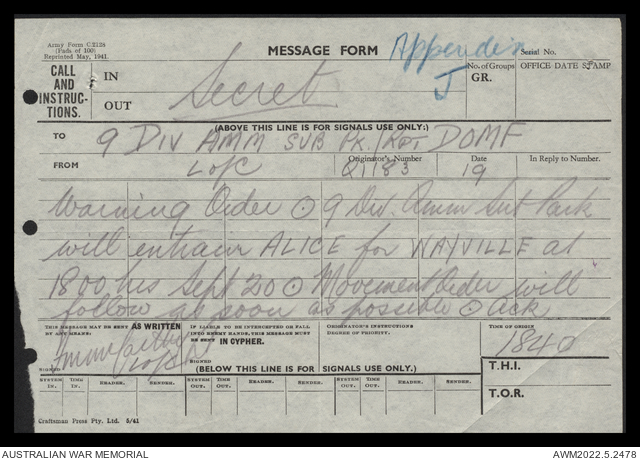 Army Form C.2128
(Pads of 100)
Reprinted May, 1941.
MESSAGE FORM
Appendix
J
Serial No.
CALL
AND
INSTRUC-
TIONS.
IN
OUT
Secret
No. of Groups
GR.
OFFICE DATE STAMP
(ABOVE THIS LINE IS FOR SIGNALS USE ONLY.)
TO
9 DIV AMM SUB PK. / RPT DOMF
FROM
L of C
Originator's Number
Q1183
Date
19
In Reply to Number.
Warning Order ⊙ 9 Div. Amm Sub Park
will entrain ALICE for WAYVILLE at
1800 hrs Sept 20 ⊙ Movement Order will
follow as soon as possible ⊙ Ack
THIS MESSAGE MAY BE SENT AS WRITTEN
BY ANY MEANS.
SIGNED
L of C
IF LIABLE TO BE INTERCEPTED OR FALL
INTO ENEMY HANDS, THIS MESSAGE MUST
BE SENT IN CYPHER.
SIGNED
ORIGINATOR'S INSTRUCTIONS
DEGREE OF PRIORITY.
TIME OF ORIGIN
1840
(BELOW THIS LINE IS FOR SIGNALS USE ONLY.)
T.H.I.
T.O.R.
SYSTEM IN. TIME IN. READER. SENDER. SYSTEM OUT. TIME OUT. READER. SENDER. SYSTEM OUT. TIME OUT. READER. SENDER.
Craftsman Press Pty. Ltd. 5/41
AUSTRALIAN WAR MEMORIAL
AWM2022.5.2478